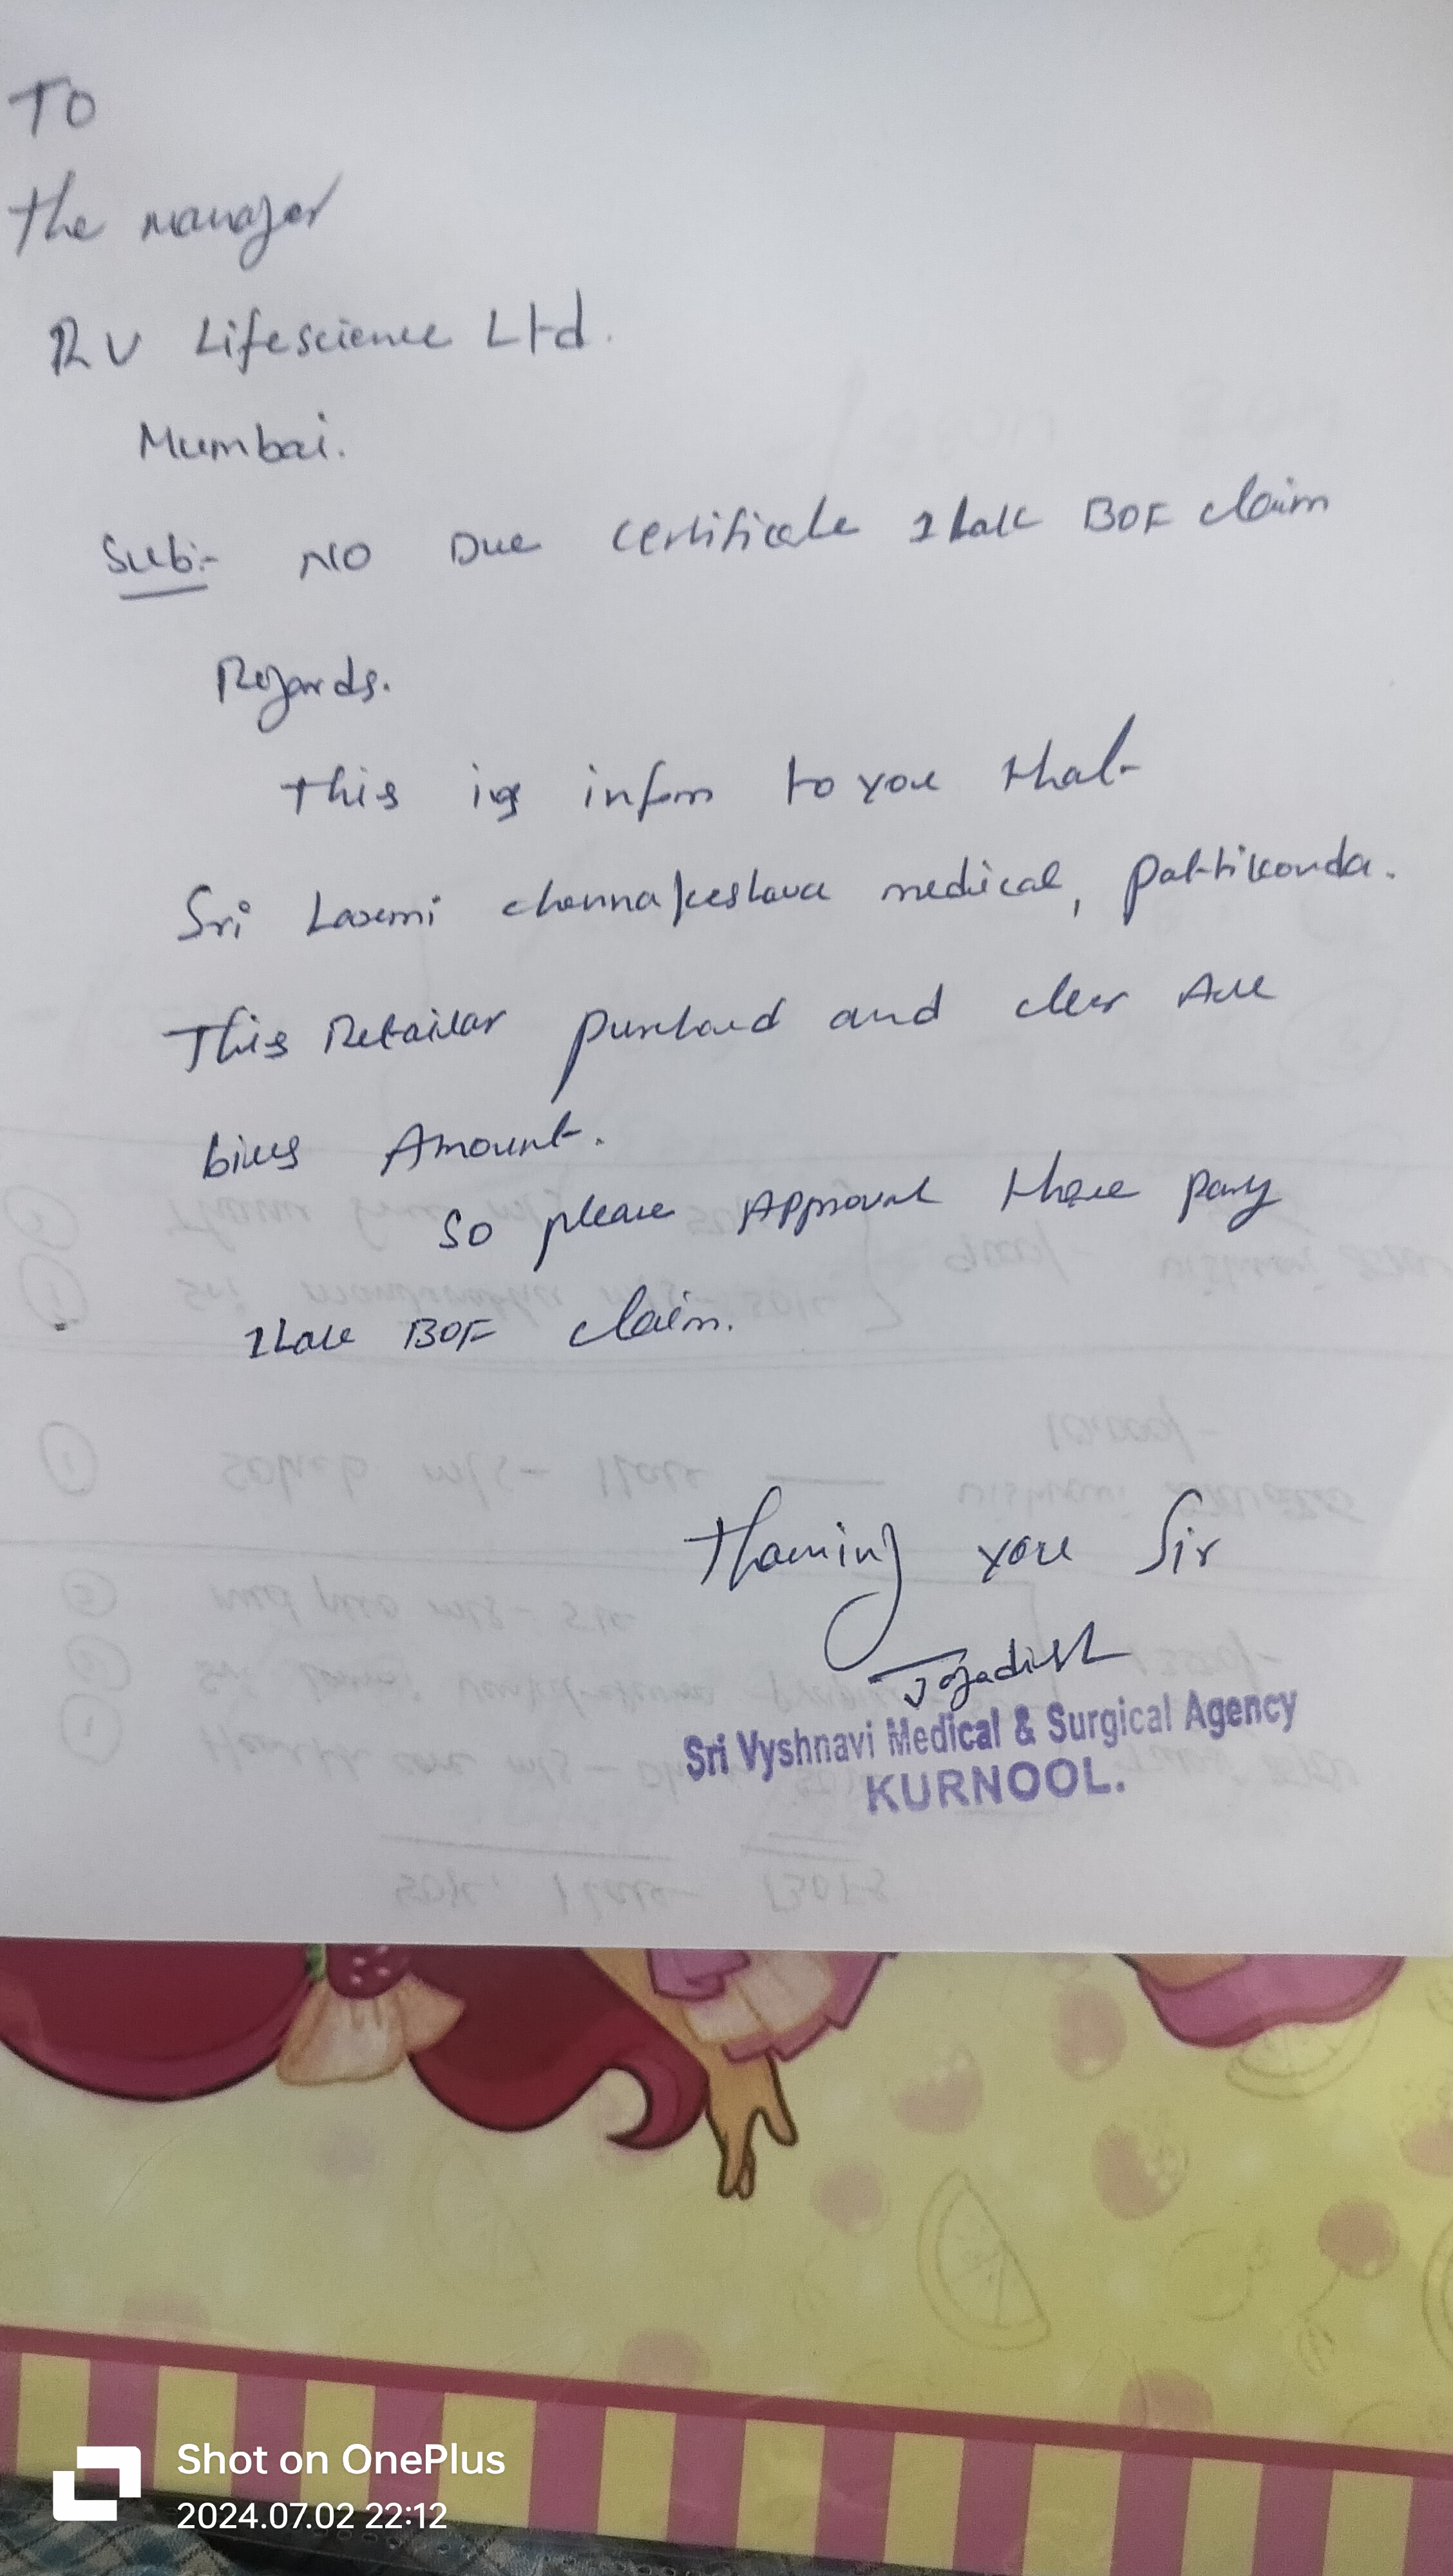 To
the manager
RV Lifescience Ltd.
Mumbai.
Sub:- NO Due certificate 1 Lak BOF claim
Regards.
This is infom to you that
Sri Laxmi chennakeshava medical, pattikonda.
This Retailar purchased and clear All
bills Amount.
So please Approval these party
1 Lak BOF claim.
Thanking you Sir
Jagadish
Sri Vyshnavi Medical & Surgical Agency
KURNOOL.
Shot on OnePlus
2024.07.02 22:12